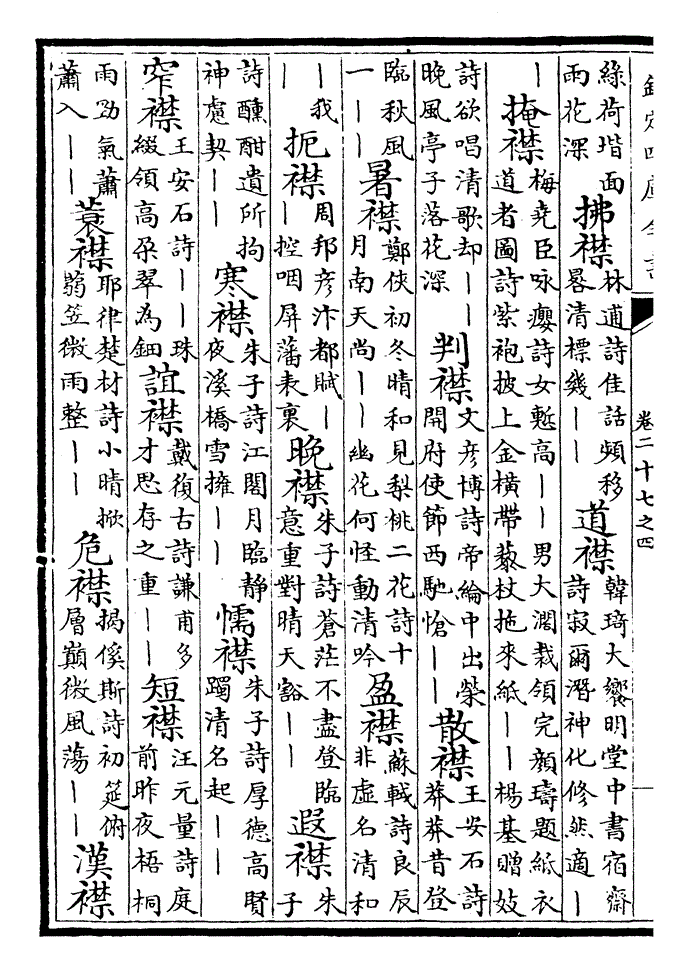 欽定四庫全書 卷二十七之四
綠荷堦面雨花深 拂襟 林逋詩佳話頻移晷清標幾丨丨 道襟 韓琦大饗明堂中書宿齋詩寂爾潛神化修然適丨
丨 掩襟 梅堯臣咏癭詩女慙高丨丨男大濶裁領完顔璹題紙衣道者圖詩紫袍披上金橫帶藜杖拖來紙丨丨楊基贈妓
詩欲唱清歌却丨丨晚風亭子落花深 判襟 文彥博詩帝綸中出榮開府使節西馳愴丨丨 散襟 王安石詩莽莽昔登
臨秋風一丨丨 暑襟 鄭俠初冬晴和見梨桃二花詩十月南天尚丨丨幽花何怪動清吟 盈襟 蘇軾詩良辰非虛名清和
丨我丨 扼襟 周邦彥汴都賦丨丨控咽屏藩表裏 晚襟 朱子詩蒼茫不盡登臨意重對晴天豁丨丨 遐襟 朱子
詩醺酣遺所拘神慮契丨丨 寒襟 朱子詩江閣月臨静夜溪橋雪擁丨丨 懦襟 朱子詩厚德高賢躅清名起丨丨
窄襟 王安石詩丨丨珠綴領高朶翠為鈿 誼襟 戴復古詩謙甫多才思存之重丨丨 短襟 汪元量詩庭前昨夜梧桐
雨勁氣蕭蕭入丨丨 蓑襟 耶律楚材詩小晴掀蒻笠微雨整丨丨 危襟 揭傒斯詩初筵俯層巔微風蕩丨丨 漢襟